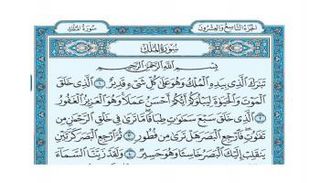 الجزء التاسع والعشرون
سورة الملك
سورة الملك
بسم الله الرحمن الرحيم
تبرك الذى بيده الملك وهو على كل شىء قدير ١ الذى خلق
الموت والحيوة ليبلوكم أيكم أحسن عملا وهو العزيز الغفور
٢ الذى خلق سبع سموت طباقا ما ترى فى خلق الرحمن من
تفوت فارجع البصر هل ترى من فطور ٣ ثم ارجع البصر كرتين
ينقلب إليك البصر خاسئا وهو حسير ٤ ولقد زينا السماء